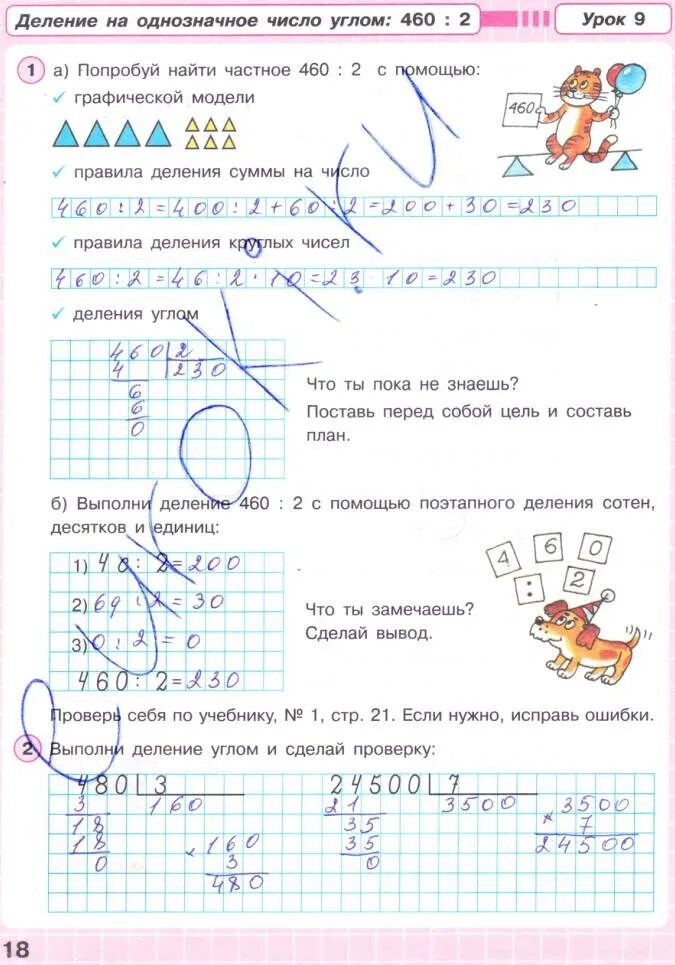 Деление на однозначное число углом: 460 : 2
Урок 9
1 а) Попробуй найти частное 460 : 2 с помощью:
✓ графической модели
460
✓ правила деления суммы на число
460:2=400:2+60:2=200+30=230
✓ правила деления круглых чисел
460:2=46:2·10=23·10=230
✓ деления углом
460 2
4 230
6
6
0
Что ты пока не знаешь?
Поставь перед собой цель и составь
план.
б) Выполни деление 460 : 2 с помощью поэтапного деления сотен,
десятков и единиц:
4 6 0
: 2
2=200
2)
2=30
3) 0:2=0
460:2=230
Что ты замечаешь?
Сделай вывод.
Проверь себя по учебнику, № 1, стр. 21. Если нужно, исправь ошибки.
2 Выполни деление углом и сделай проверку:
480 3
3 160
18
18
0
160
× 3
480
24500 7
21 3500
35
35
0
3500
× 7
24500
18